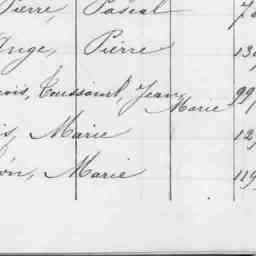 Pierre, Pascal 7
Ange, Pierre 13
ois, Toussaint, Jean Marie 99
is, Marie 12
on, Marie 119